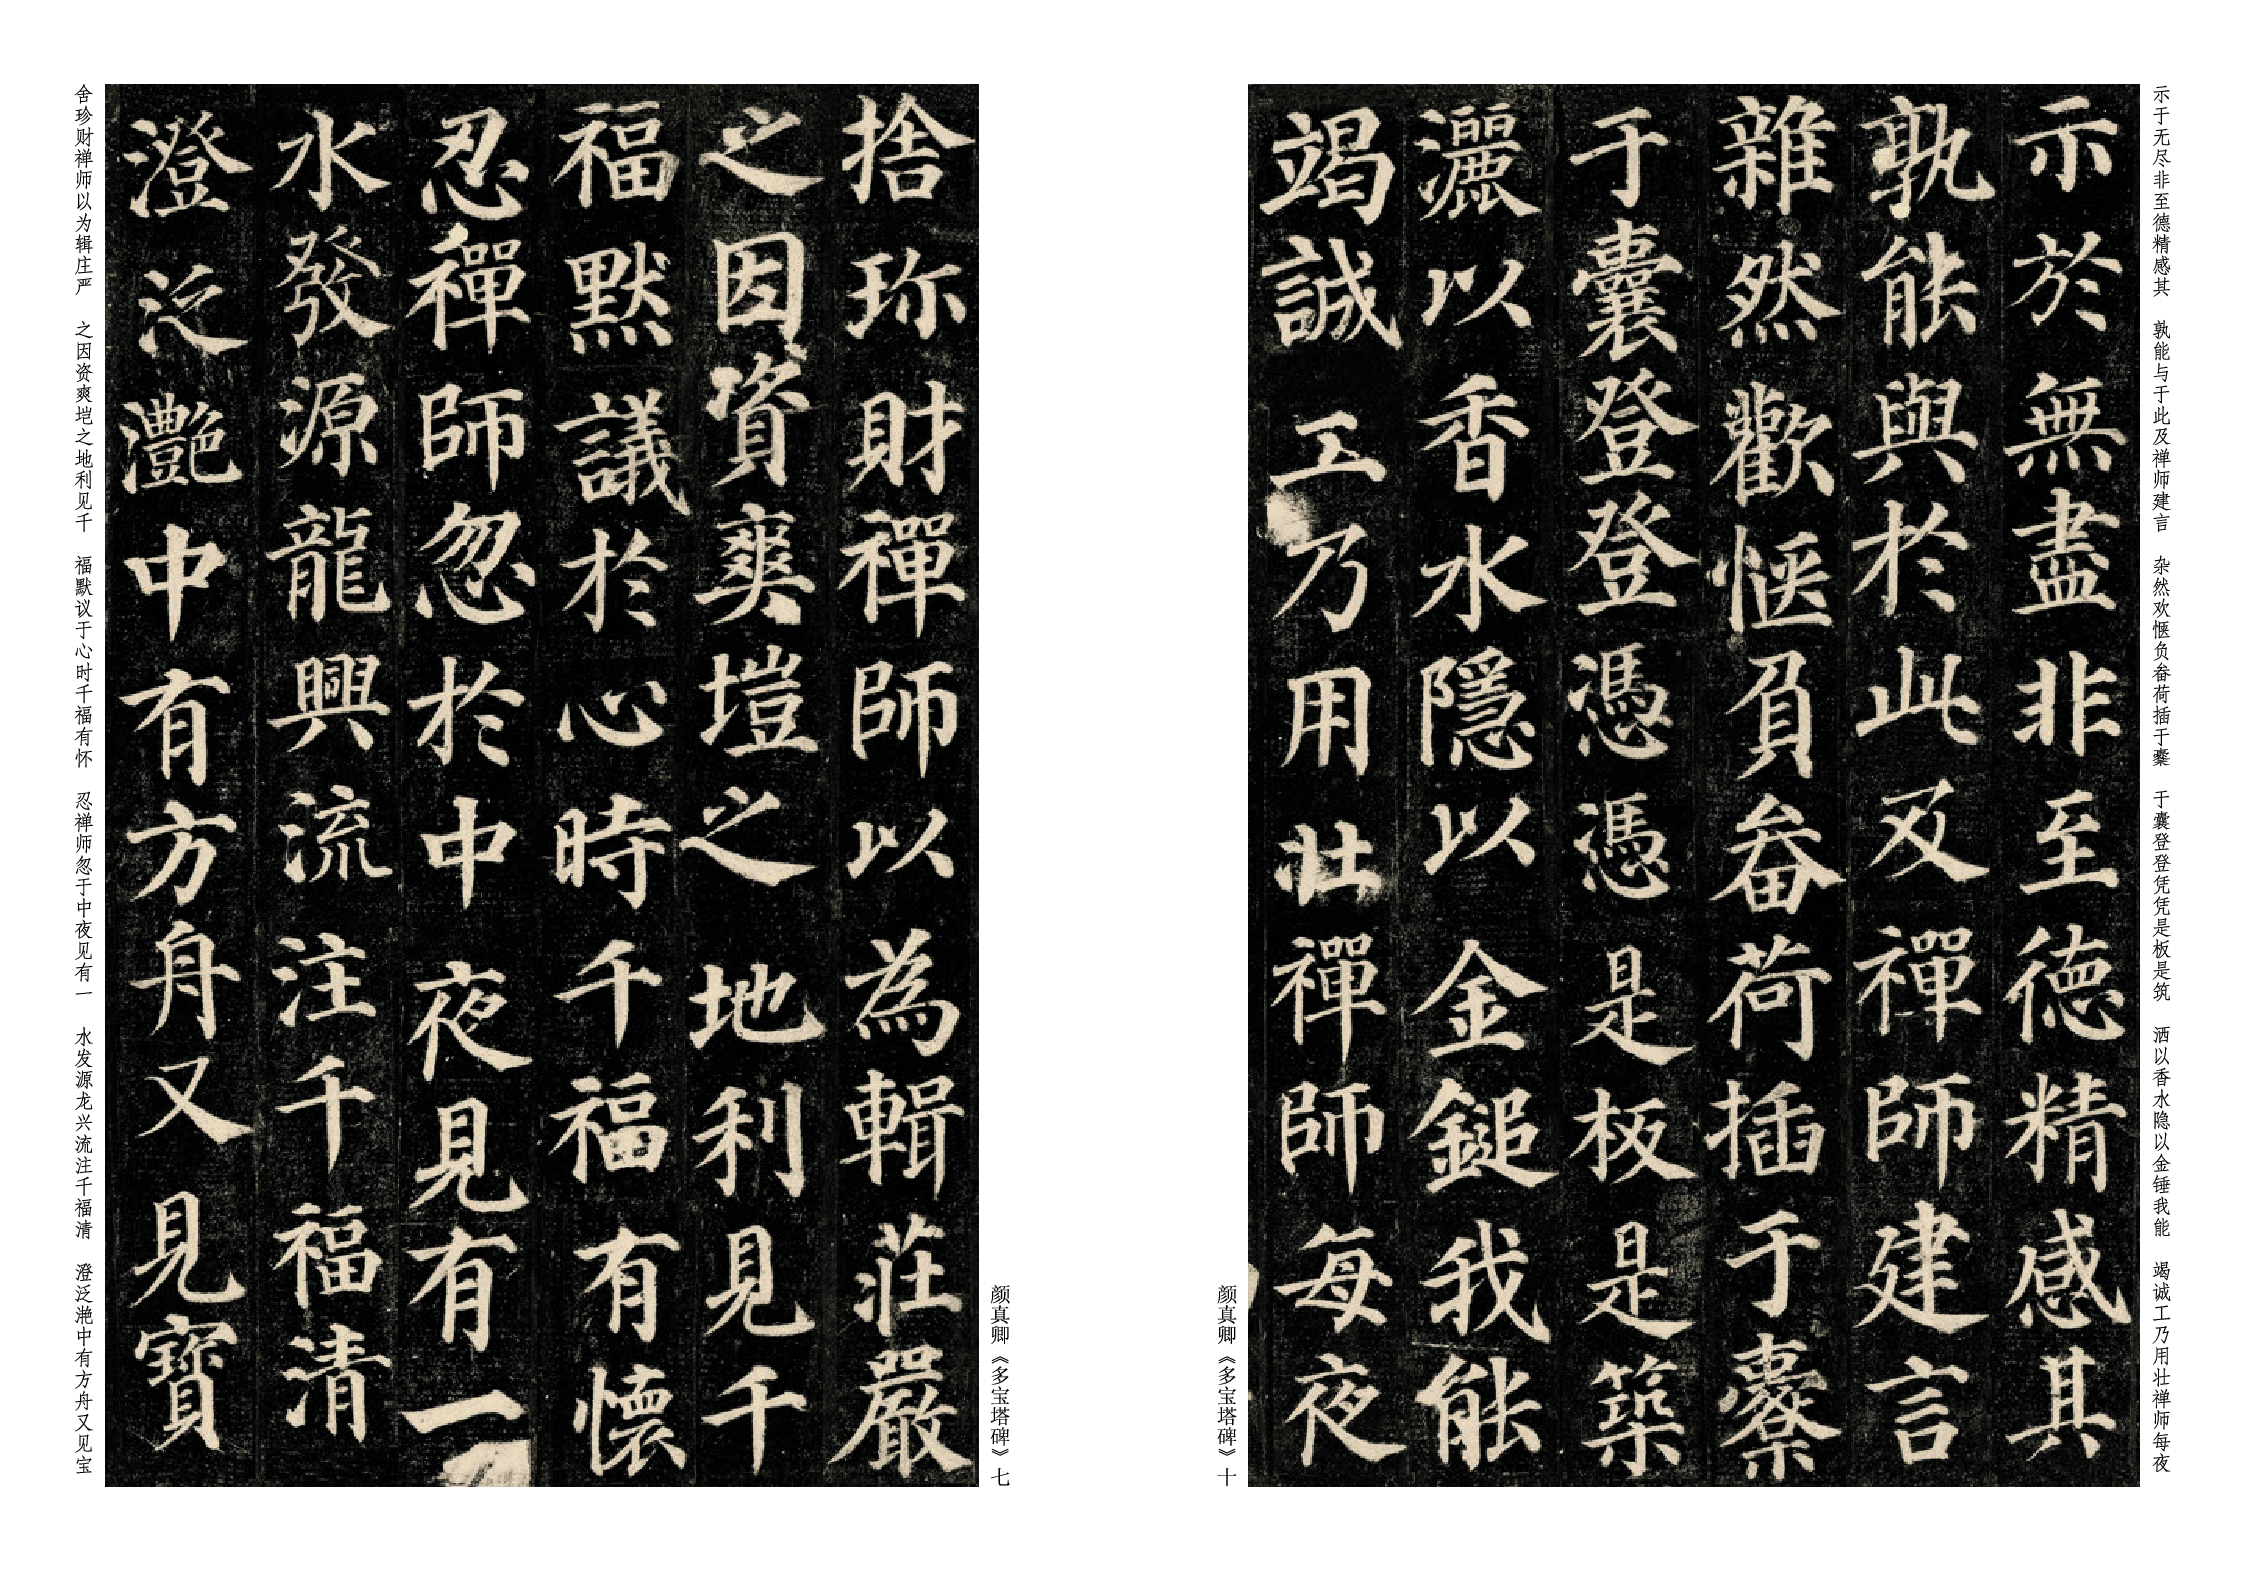 示于无尽非至德精感其　孰能与于此及禅师建言　杂然欢惬负畚荷插于橐　于囊登登凭凭是板是筑　洒以香水隐以金锤我能　竭诚工乃用壮禅师每夜
示於無盡非至德精感其
孰能與於此及禪師建言
雜然歡愜負畚荷插于橐
于囊登登憑憑是板是築
灑以香水隱以金鎚我能
竭誠工乃用壯禪師每夜
颜真卿《多宝塔碑》十
颜真卿《多宝塔碑》七
捨珎財禪師以為輯莊嚴
之因資爽塏之地利見千
福默議於心時千福有懷
忍禪師忽於中夜見有一
水發源龍興流注千福清
澄泛灩中有方舟又見寶
舍珍财禅师以为辑庄严　之因资爽垲之地利见千　福默议于心时千福有怀　忍禅师忽于中夜见有一　水发源龙兴流注千福清　澄泛滟中有方舟又见宝